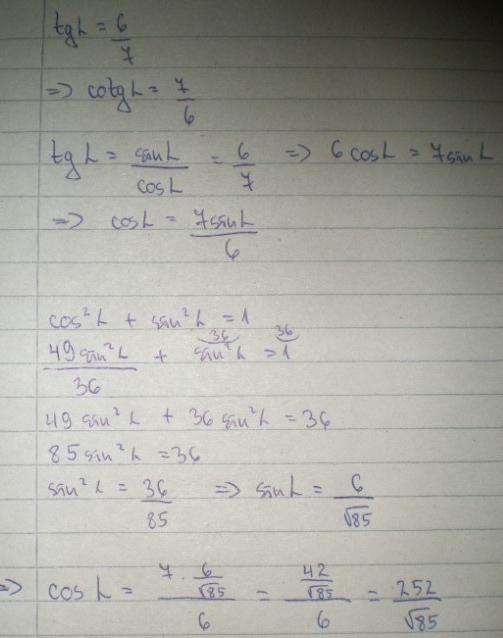 tg L = 6/7
=> cotg L = 7/6
tg L = sin L / cos L = 6/7 => 6 cos L = 7 sin L
=> cos L = 7 sin L / 6
cos² L + sin² L = 1
49 sin² L / 36 + sin² L (36) = 1 (36)
49 sin² L + 36 sin² L = 36
85 sin² L = 36
sin² L = 36/85 => sin L = 6/√85
=> cos L = (7 · 6/√85) / 6 = (42/√85) / 6 = 252/√85